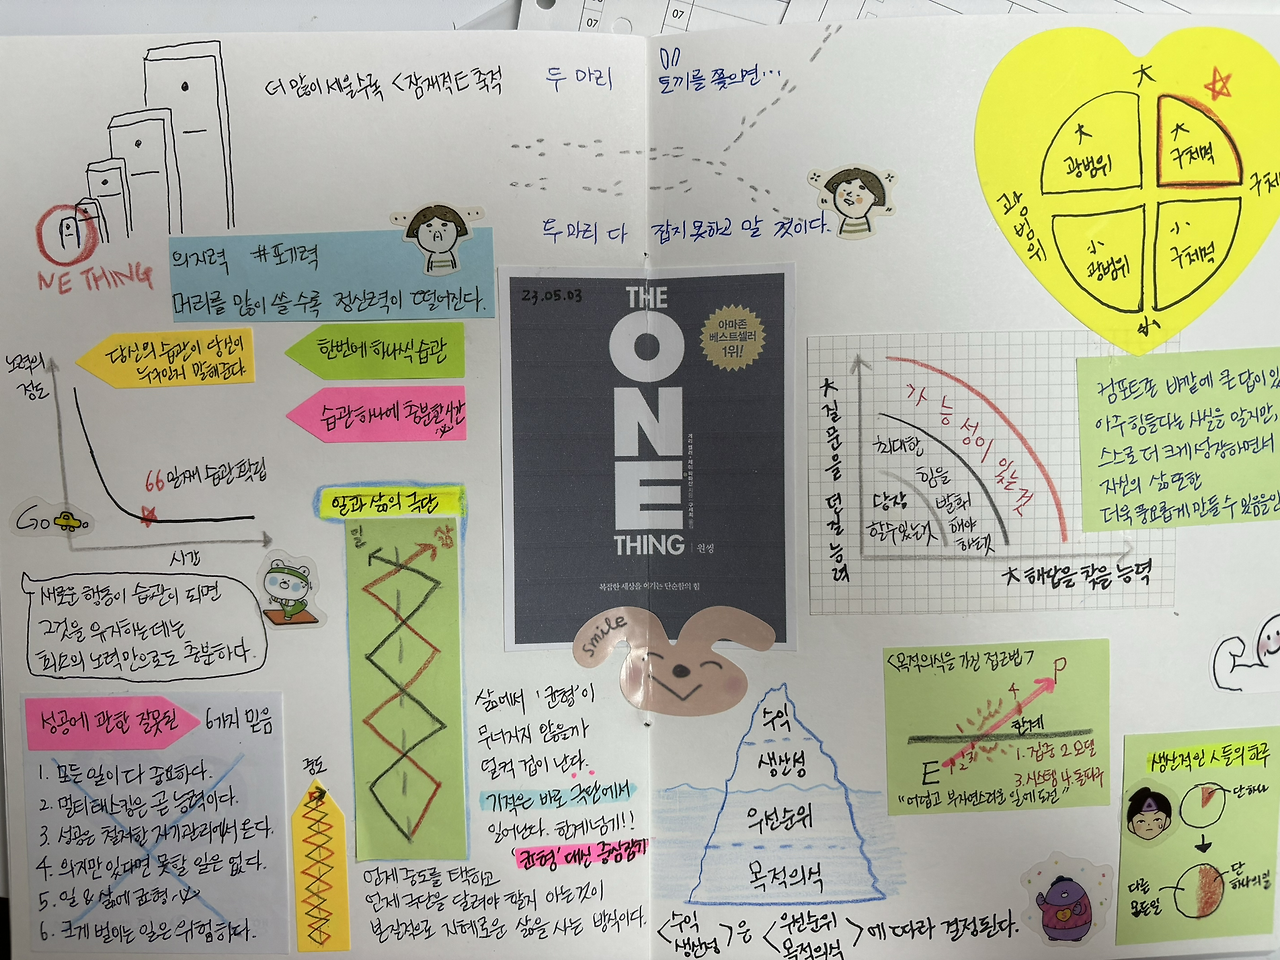 07
07
더 많이 세울수록 <잠재적 E 축적
두 마리 토끼를 쫓으면...
두 마리 다 잡지 못하고 말 것이다.
NE THING
의지력 #포기력
머리를 많이 쓸 수록 정신력이 떨어진다.
당신의 습관이 당신이
누구인지 말해준다
한번에 하나씩 습관
습관 하나에 충분한 시간
노력의
정도
66일째 습관 확립
Go
시간
새로운 행동이 습관이 되면
그것을 유지하는데는
최소의 노력만으로도 충분하다.
성공에 관한 잘못된 6가지 믿음
1. 모든 일이 다 중요하다.
2. 멀티태스킹은 곧 능력이다.
3. 성공은 철저한 자기관리에서 온다.
4. 의지만 있다면 못할 일은 없다.
5. 일 & 삶에 균형
6. 크게 벌이는 일은 위험하다.
중도
일과 삶의 극단
일 삶
삶에서 '균형'이
무너지지 않을까
덜컥 겁이 난다.
기적은 바로 극단에서
일어난다. 한계 넘기!!
'균형' 대신 중심잡기
언제 중도를 택하고
언제 극단을 달려야 할지 아는것이
본질적으로 지혜로운 삶을 사는 방식이다.
23.05.03
THE
ONE
THING
원씽
아마존
베스트셀러
1위!
복잡한 세상을 이기는 단순함의 힘
smile
수익
생산성
우선순위
목적의식
<수익
생산성> 은 <우선순위
목적의식> 에 따라 결정된다.
大
大
광범위
大
구체적
광범위
구체
小
광범위
小
구체적
小
大 질문을 던질 능력
가능성이 있는 것
최대한
힘을
발휘
해야
하는것
당장
할수있는것
大 해답을 찾을 능력
컴포트존 바깥에 큰 답이 있
아주 힘들다는 사실을 알지만,
스스로 더 크게 성장하면서
자신의 삶 또한
더욱 풍요롭게 만들 수 있음을 안
<목적의식을 가진 접근법>
P
4
한계
E
1 2 3
1. 집중 2. 모델
3. 시스템 4. 돌파구
"어렵고 부자연스러운 일에 도전"
생산적인 人들의 하루
단 하나
다른
모든일
단
하나의 일